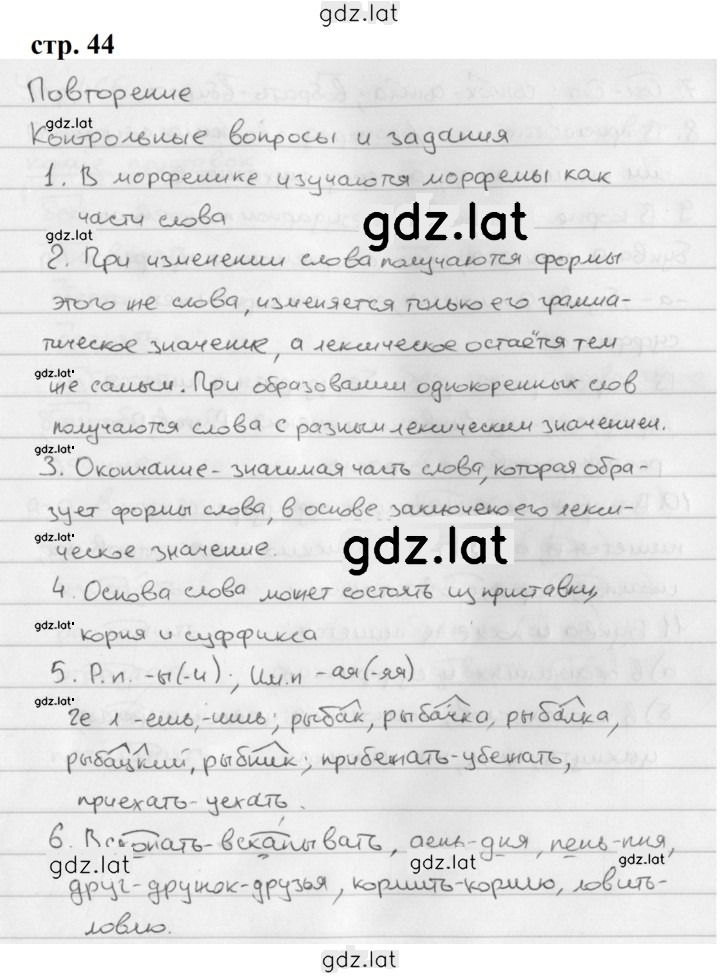 gdz.lat
стр. 44
Повторение
gdz.lat
Контрольные вопросы и задания
1. В морфемике изучаются морфемы как
части слова
gdz.lat
gdz.lat
2. При изменении слова получаются формы
этого же слова, изменяется только его грамма-
тическое значение, а лексическое остаётся тем
gdz.lat
же самым. При образовании однокоренных слов
получаются слова с разным лексическим значением.
gdz.lat
3. Окончание - значимая часть слова, которая обра-
зует формы слова, в основе заключено его лекси-
gdz.lat
ческое значение.
gdz.lat
4. Основа слова может состоять из приставки,
gdz.lat
корня и суффикса
5. Р.п. -ы(-и); Им.п -ая(-яя)
gdz.lat
2е л -ешь,-ишь; рыбак, рыбачка, рыбалка,
gdz.lat
рыбацкий, рыбник; прибежать-убежать,
приехать-уехать.
6. Вскопать-вскапывать, день-дня, пень-пня,
gdz.lat
gdz.lat
gdz.lat
друг-дружок-друзья, кормить-кормлю, ловить-
ловлю.
gdz.lat